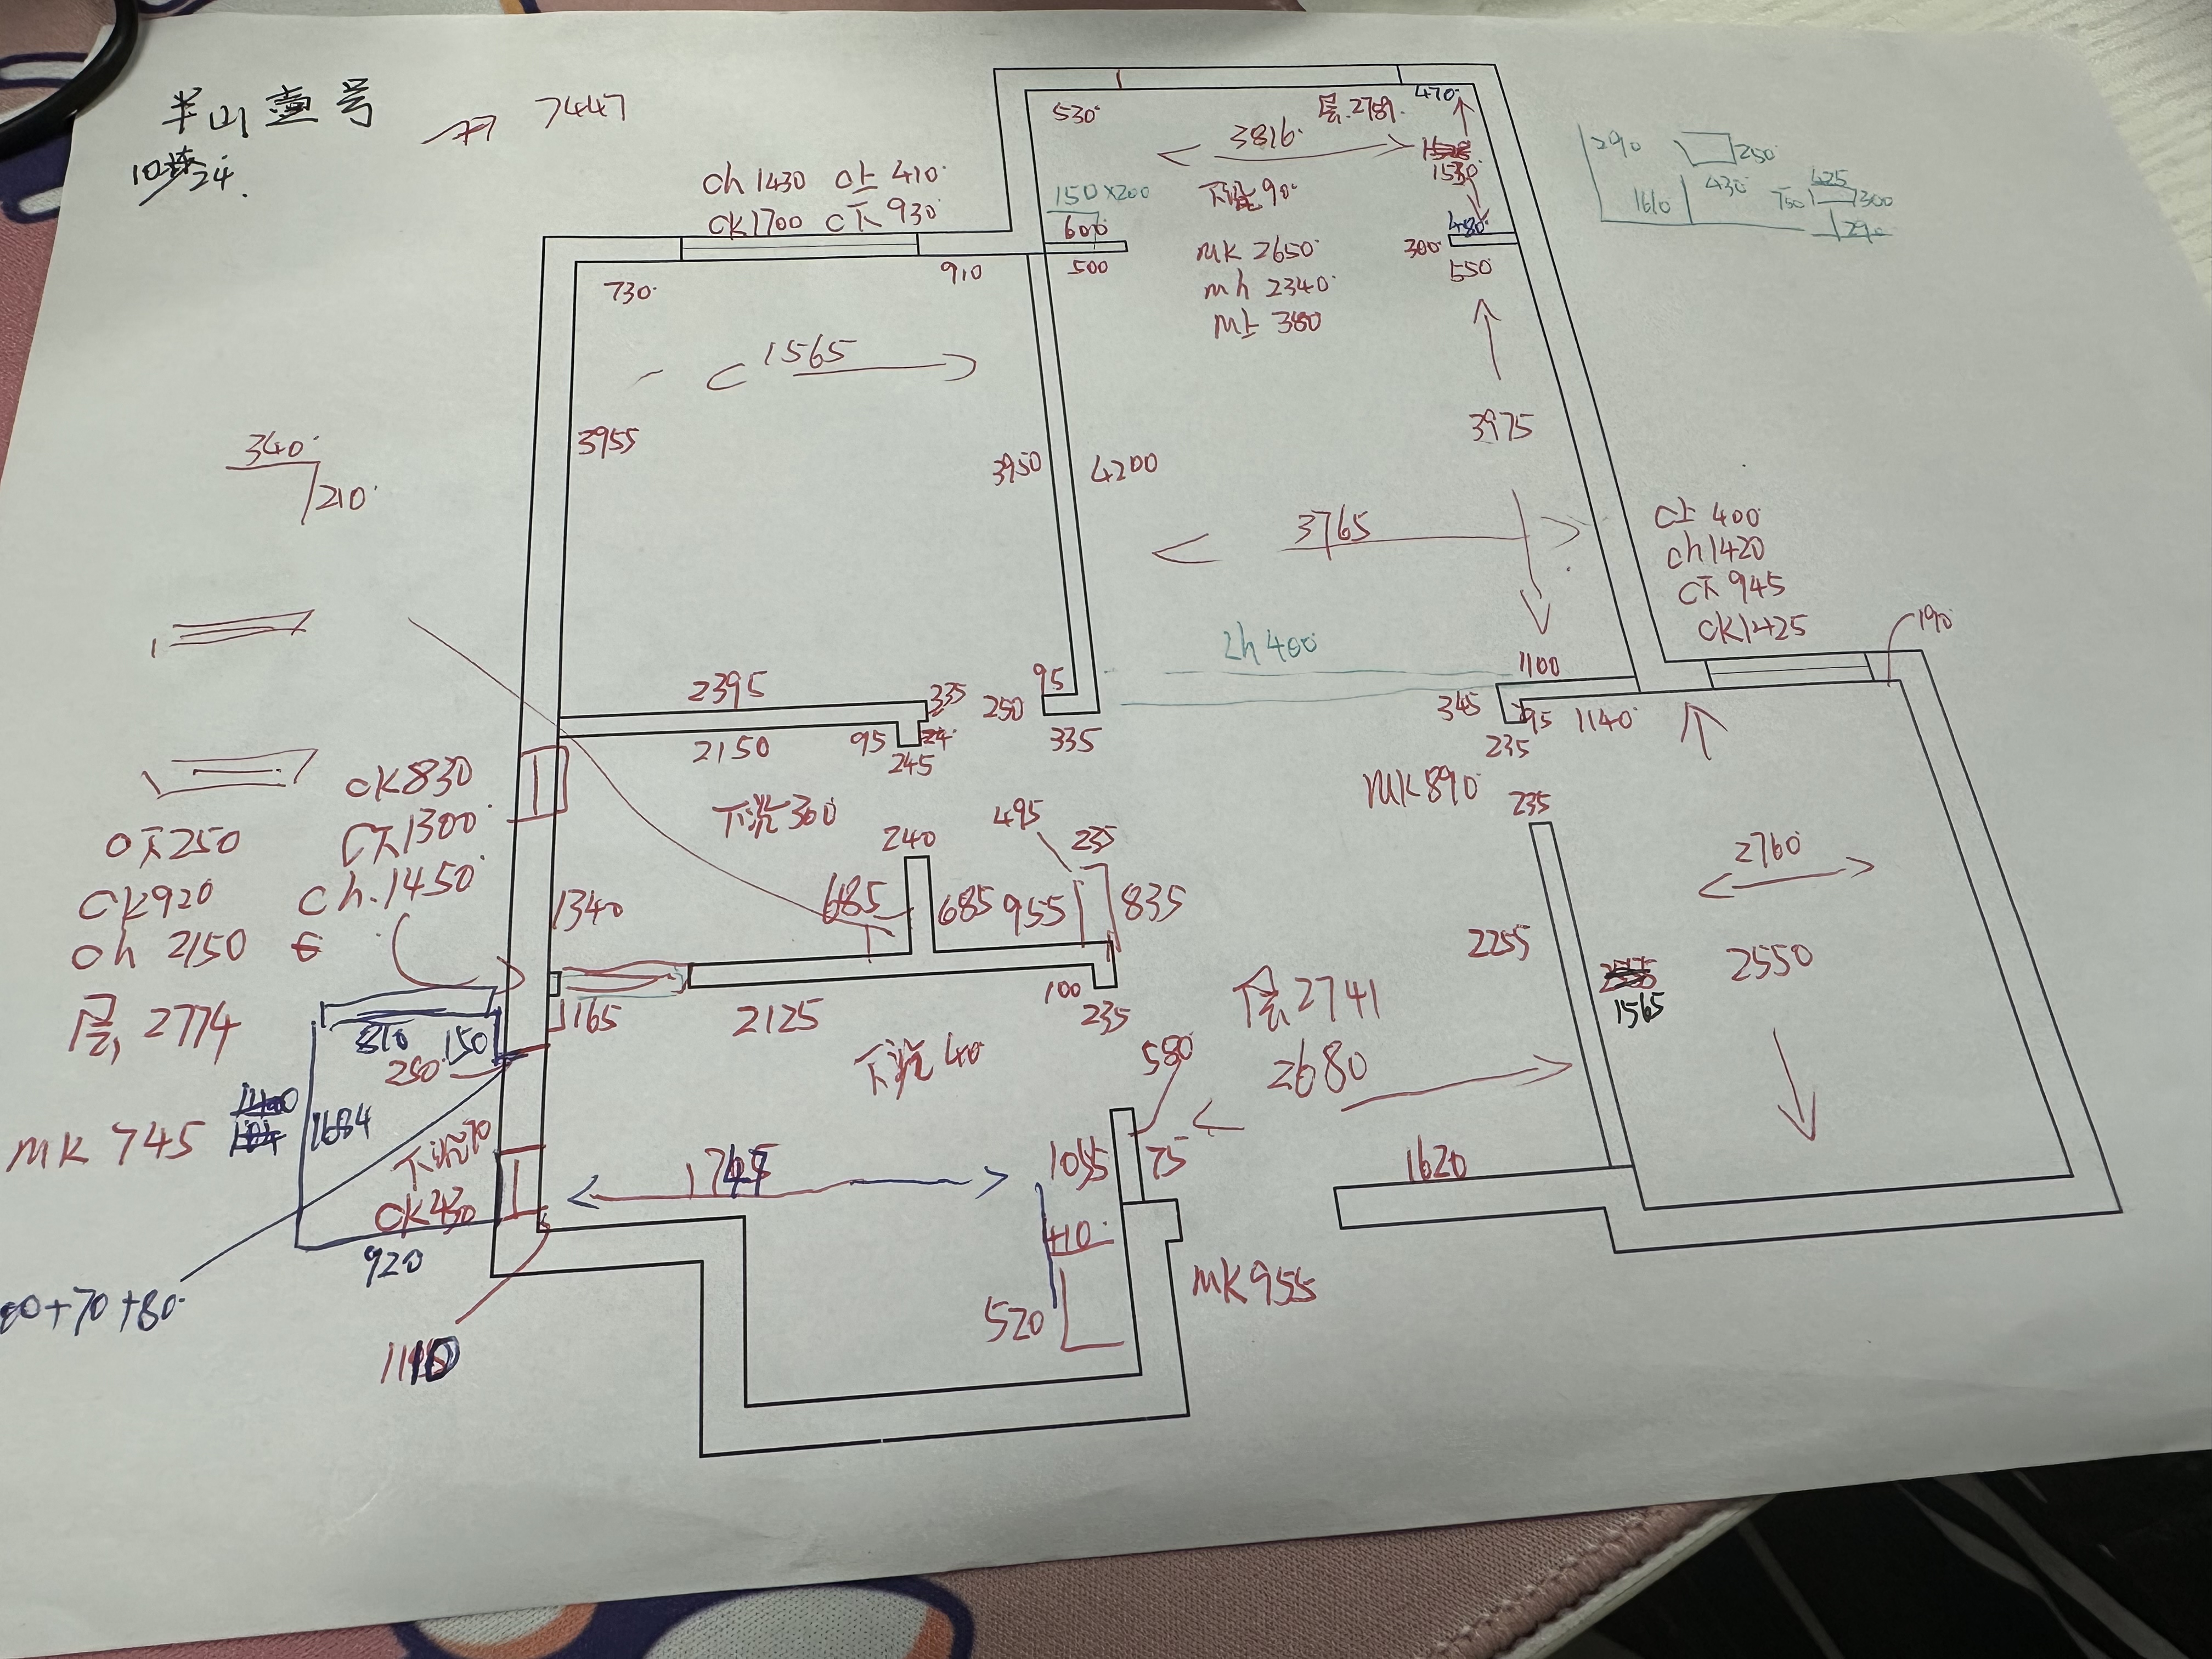 半山壹号
10栋24.
7447
ch 1430 c上 410
ck1700 c下 930
530
层.2789.
470
3816
1530
150×200
600
下沉90
480
300
550
500
MK 2650
Mh 2340
M上 380
290
250
1610
430
750
425
300
290
730
910
1565
3955
3950
4200
3975
3765
340
210
c上 400
ch1420
c下 945
ck1425
190
2h 400
1100
95
250
335
345
95
1140
235
2395
235
2150
95
245
下沉360
MK890
235
495
235
240
685
685
955
835
2760
2255
2550
1565
ck830
C下1300
Ch.1450
c下250
ck920
ch 2150
层, 2774
1340
165
2125
100
235
层2741
下沉40
2680
580
810
150
250
1684
MK 745
下沉70
ck430
920
1055
75
1620
410
520
MK955
+70+80
1110